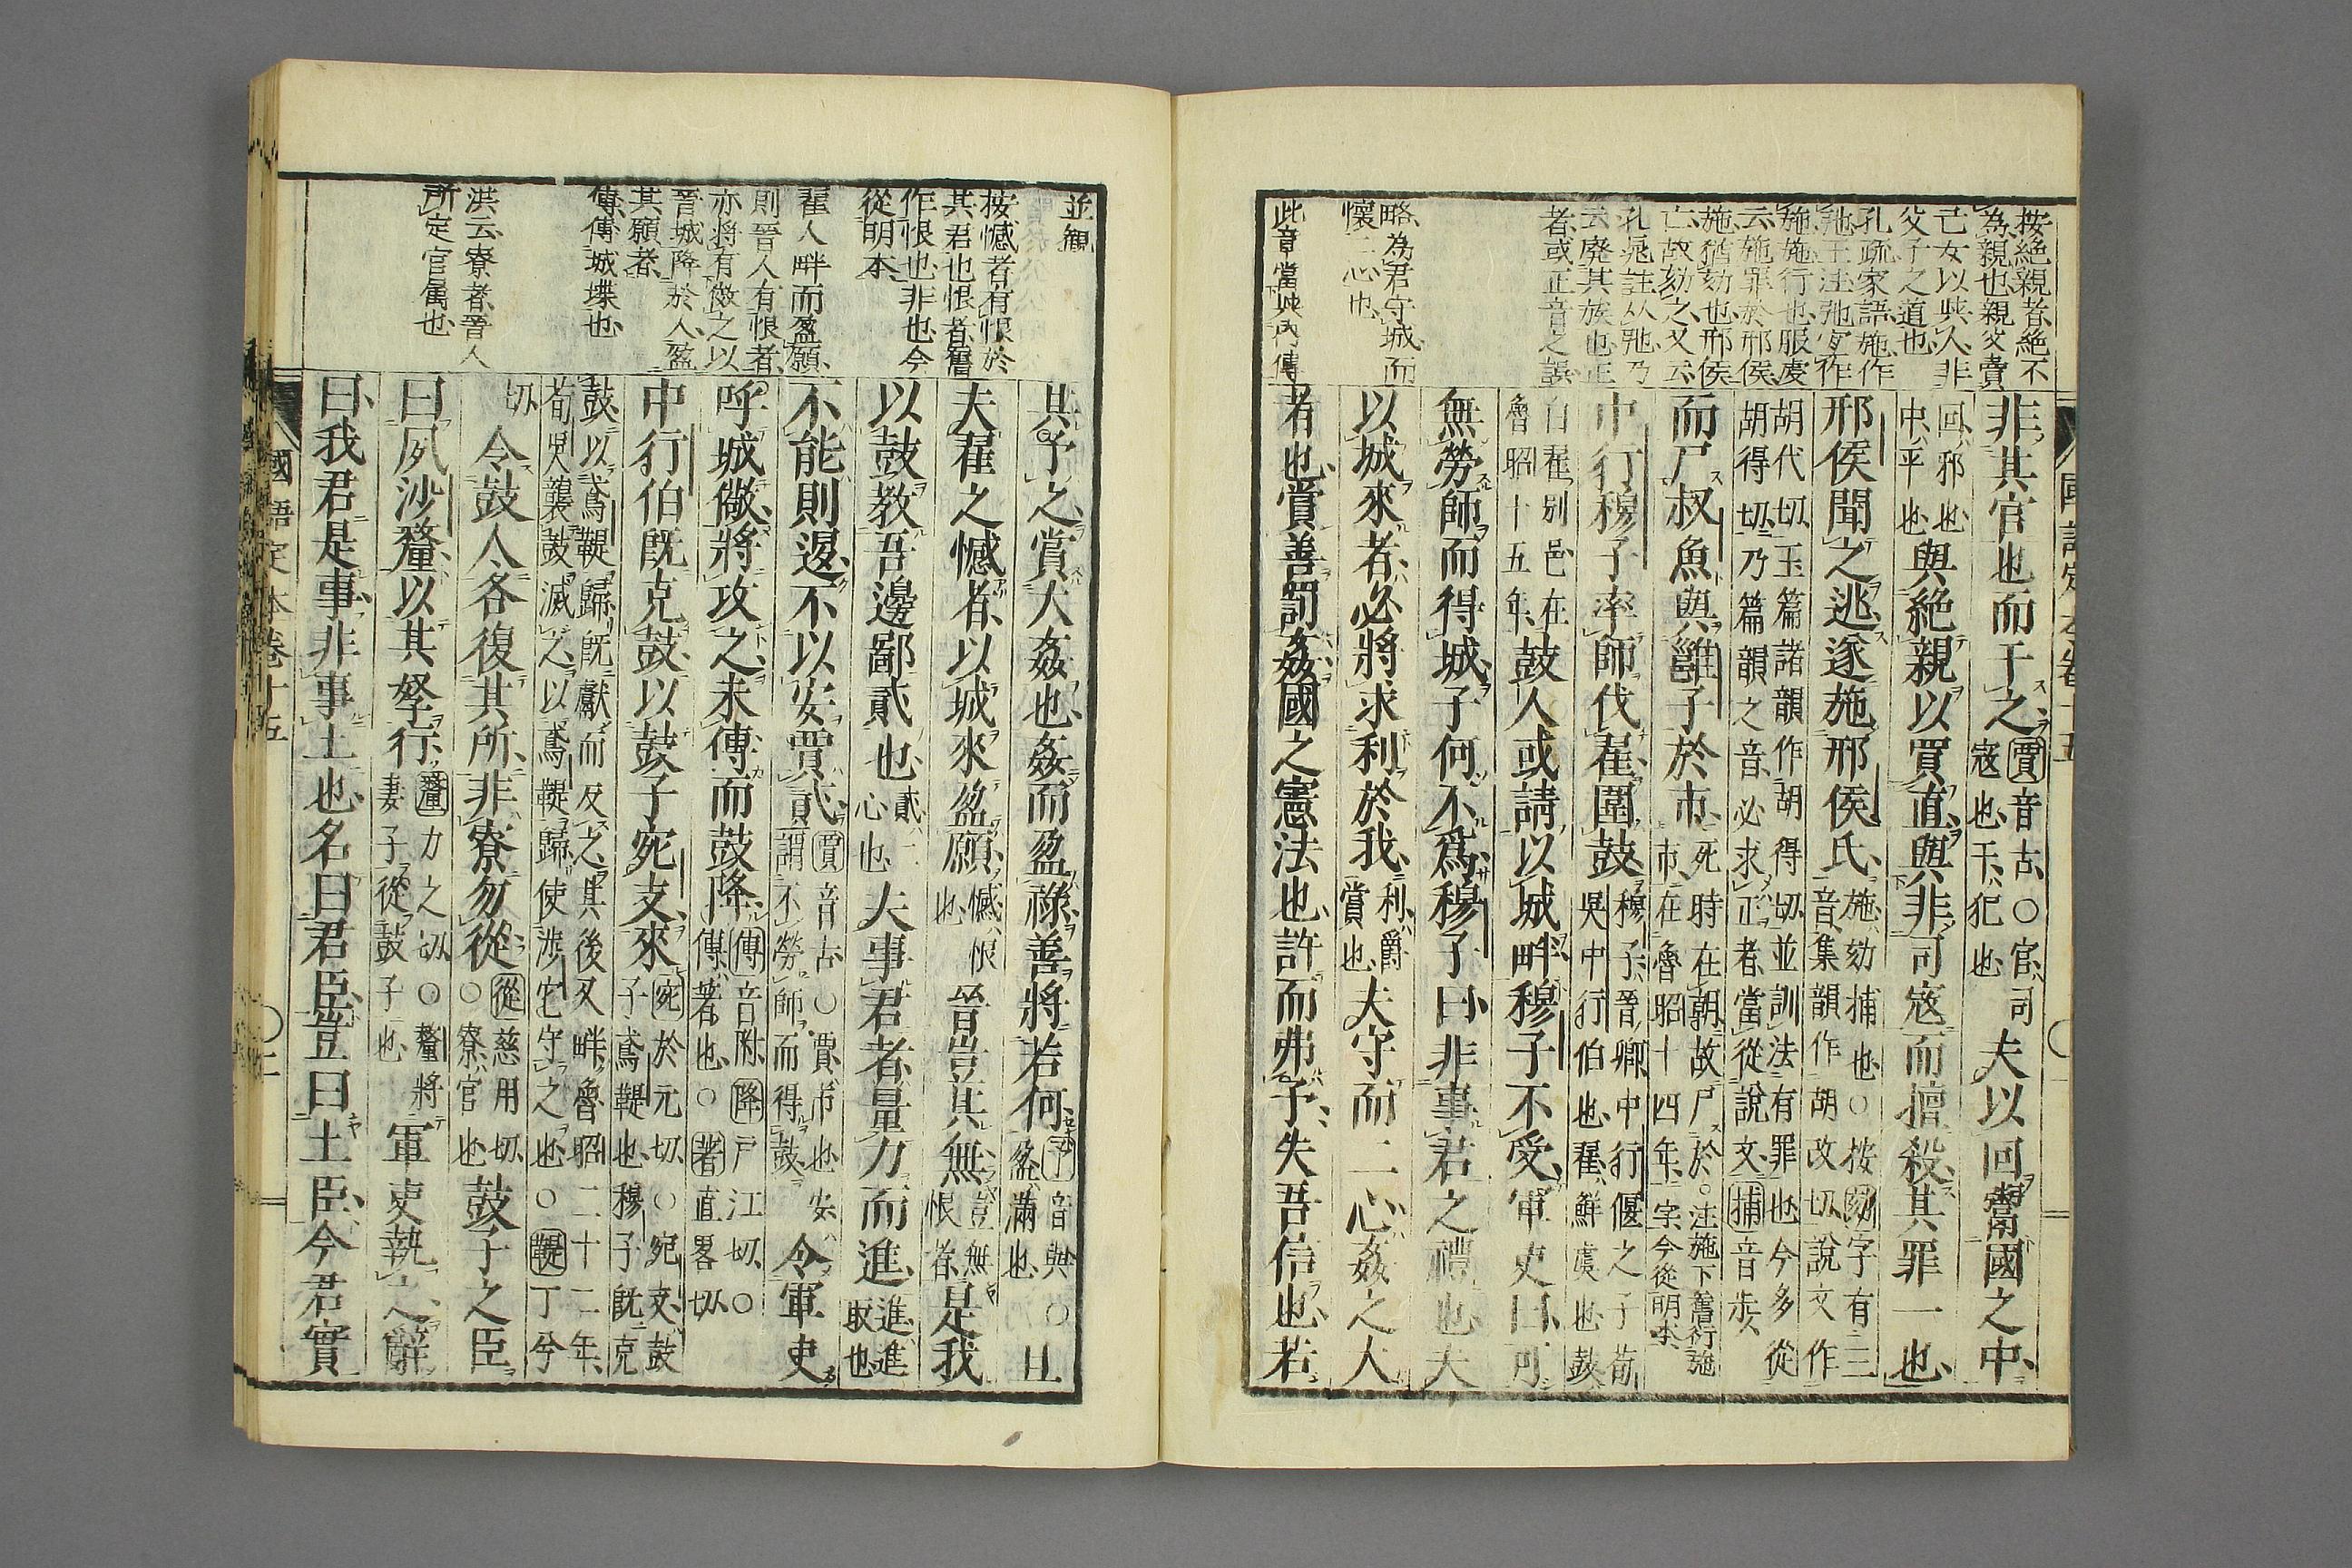 按絶親者絶不
為親也親父賣
己女以與人非
父子之道也
孔疏家語施作
施施行也服虔
云施罪於邢侯
施猶劾也邢侯
亡故劾之又云
孔晁註从弛乃
云廢其族也正
者或正音之誤
略為君守城而
懷二心也
此章當與内傳
非其官也而干之賈音古○官司寇也干犯也夫以回鬻國之中
回邪也中平也與絶親以買直與非司寇而擅殺其罪一也
邢侯聞之逃遂施邢侯氏施劾捕也○按劾字有三音集韻作胡改切説文作
胡代切玉篇諸韻作胡得切並訓法有罪也今多從胡得切乃篇韻之音必求正者當從説文捕音歩
而尸叔魚與雝子於市死時在朝故尸於市在魯昭十四年○注施下舊衍施字今從明本
中行穆子率師伐翟圍鼓穆子晉卿中行偃之子荀吳中行伯也翟鮮虞也鼓
白翟別邑在魯昭十五年鼓人或請以城畔穆子不受軍吏曰可
無勞師而得城子何不爲穆子曰非事君之禮也夫
以城來者必將求利於我利爵賞也夫守而二心姦之大
者也賞善罰姦國之憲法也許而弗予失吾信也若
並観
按憾者有恨於
其君也恨者舊
作恨也非也今
從明本
翟人畔而盈願
則晉人有恨者
亦將有傚之以
晉城降於人盈
其願者
傳傳城堞也
洪云寮者晉人
所定官属也
其予之賞大姦也姦而盈祿善將若何予音與○盈滿也且
夫翟之憾者以城來盈願憾恨也晉豈其無豈無恨者是我
以鼓教吾邊鄙貳也貳二心也夫事君者量力而進進進取也
不能則退不以安賈貳賈音古○賈市也安謂不勞師而得鼓令軍吏
呼城儆將攻之未傳而鼓降傳音附降戸江切○傳著也○著直畧切
中行伯既克鼓以鼓子宛支來宛於元切○宛支鼓子鳶鞮也穆子既克
鼓以鳶鞮歸既獻而反之其後又畔魯昭二十二年荀吳襲鼓滅之以鳶鞮歸使渉佗守之也○鞮丁兮
切令鼓人各復其所非寮勿從從慈用切○寮官也鼓子之臣
曰夙沙釐以其孥行釐力之切○釐將妻子從鼓子也軍吏執之辭
曰我君是事非事土也名曰君臣豈曰土臣今君實
國語定本卷十五